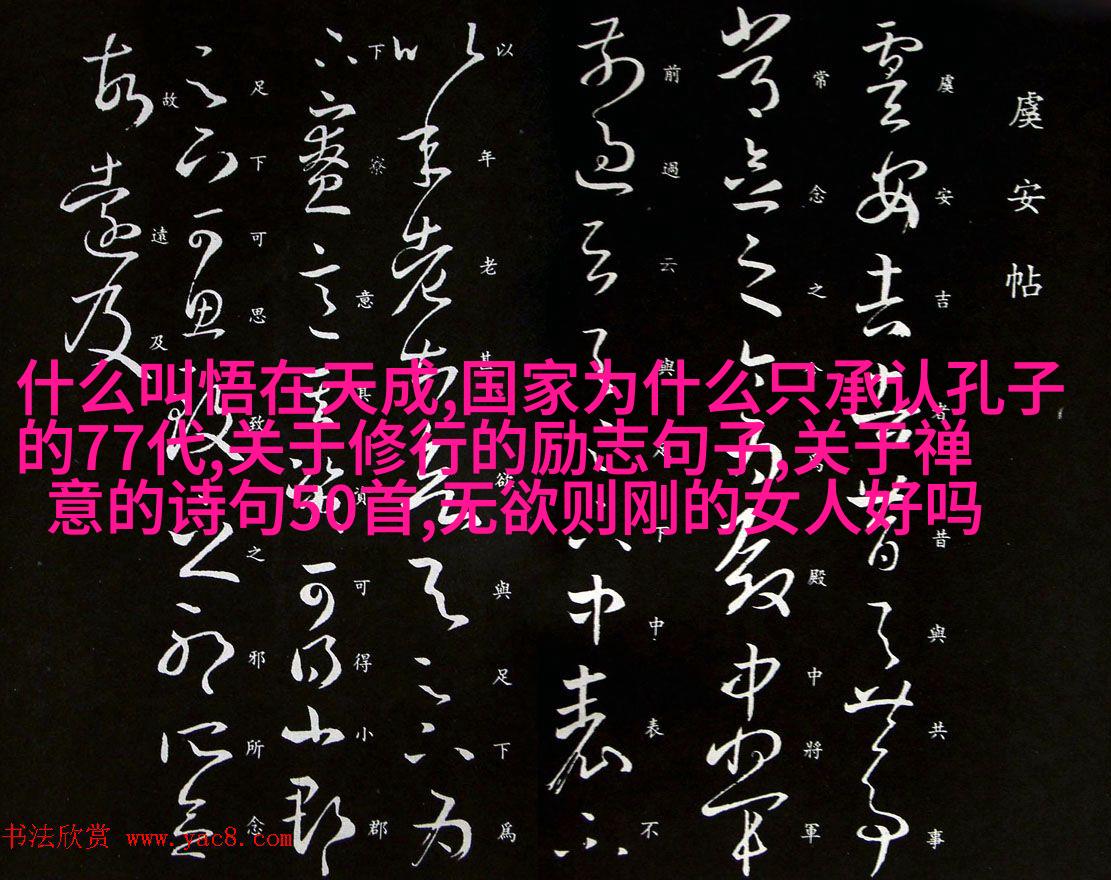 虞安帖
虞安吉者昔與共事
常念之今為殿中將軍
前過云與足下中表不
以年老甚欲與足下為
下寮意其資可得小郡
足下可思致之邪所念
故遠及
什么叫悟在天成,国家为什么只承认孔子
的77代,关于修行的励志句子,关于禅
意的诗句50首,无欲则刚的女人好吗
书法欣赏 www.yac8.com